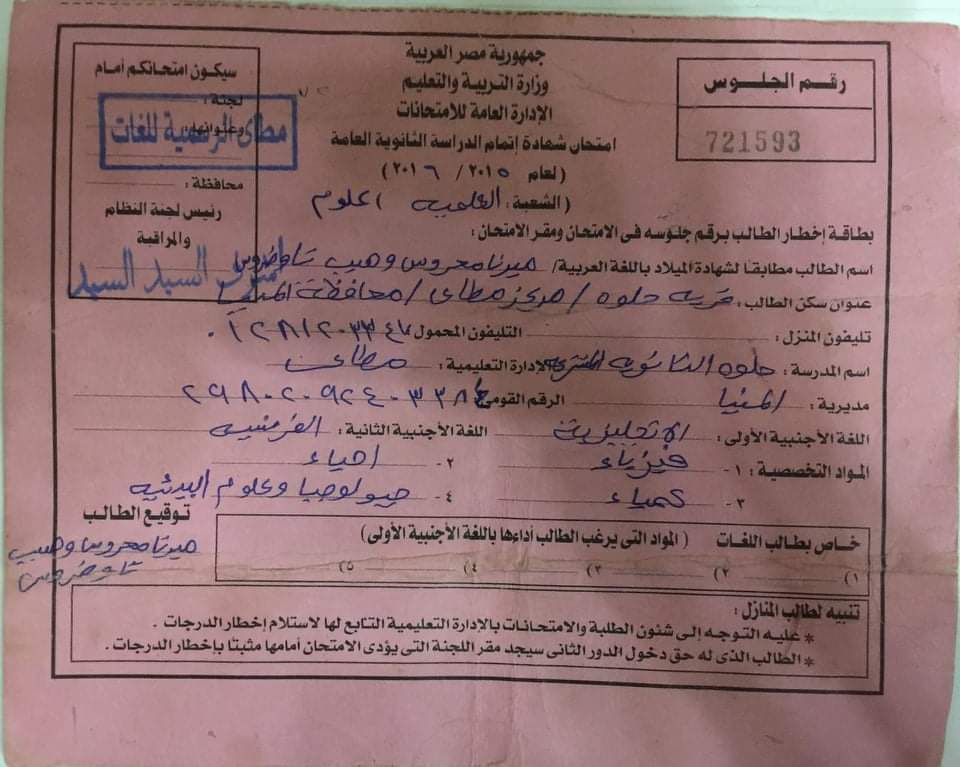 جمهورية مصر العربية
وزارة التربية والتعليم
الإدارة العامة للامتحانات
امتحان شهادة إتمام الدراسة الثانوية العامة
( لعام ٢٠١٥ / ٢٠١٦ )
( الشعبة : العلمية ) علوم
رقم الجلوس
721593
سيكون امتحانكم أمام
لجنة :
وعنوانها :
مطاى الرسمية للغات
محافظة :
رئيس لجنة النظام
والمراقبة
السيد السيد
بطاقة إخطار الطالب برقم جلوسه فى الامتحان ومقر الامتحان :
اسم الطالب مطابقا لشهادة الميلاد باللغة العربية / ميرنا محروس وهيب تاوضروس
عنوان سكن الطالب : قرية حلوه / مركز مطاى / محافظة المنيا
تليفون المنزل : التليفون المحمول
اسم المدرسة : حلوه الثانوية المشتركة الإدارة التعليمية : مطاى
مديرية : المنيا الرقم القومى
اللغة الأجنبية الأولى : الانجليزية اللغة الأجنبية الثانية : الفرنسيه
المواد التخصصية : ١- فيزياء ٢- احياء
٣- كمياء ٤- جيولوجيا وعلوم البيئيه
توقيع الطالب
ميرنا محروس وهيب
تاوضروس
خاص بطالب اللغات ( المواد التى يرغب الطالب أداءها باللغة الأجنبية الأولى )
١) ٢) ٣) ٤) ٥)
تنبيه لطالب المنازل :
* عليه التوجه إلى شئون الطلبة والامتحانات بالإدارة التعليمية التابع لها لاستلام إخطار الدرجات .
* الطالب الذى له حق دخول الدور الثانى سيجد مقر اللجنة التى يؤدى الامتحان أمامها مثبتا بإخطار الدرجات .